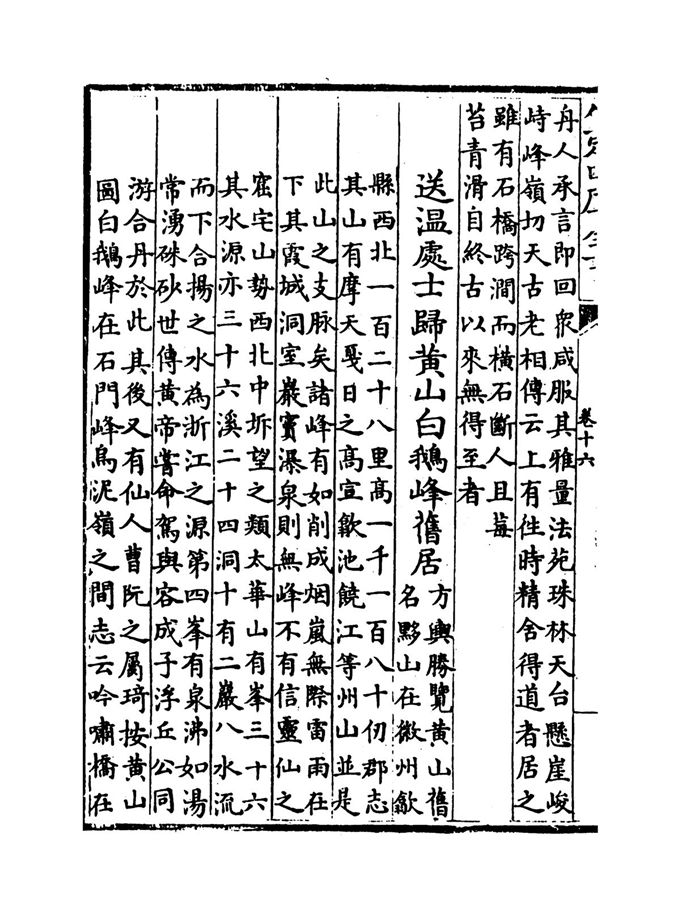 卷十六
丹人承言即回衆咸服其雅量法苑珠林天台懸崖峻
峙峰嶺切天古老相傳云上有佳時精舍得道者居之
雖有石橋跨澗而橫石斷人且莓
苔青滑自終古以來無得至者
送温處士歸黄山白鵝峰舊居
方輿勝覽黄山舊
名黟山在徽州歙
縣西北一百二十八里高一千一百八十仞郡志
其山有摩天戛日之高宣歙池饒江等州山並是
此山之支脉矣諸峰有如削成烟嵐無際雷雨在
下其霞城洞室巖竇瀑泉則無峰不有信靈仙之
窟宅山勢西北中坼望之類太華山有峯三十六
其水源亦三十六溪二十四洞十有二巖八水流
而下合揚之水為浙江之源第四峯有泉沸如湯
常湧硃砂世傳黄帝嘗命駕與容成子浮丘公同
游合丹於此其後又有仙人曹阮之屬琦按黄山
圖白鵝峰在石門峰烏泥嶺之間志云吟嘯橋在